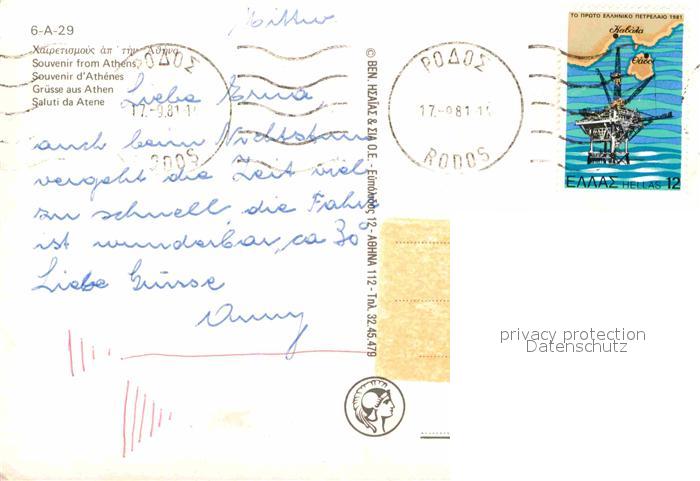 6-A-29
Χαιρετισμούς ἀπ' τὴν Ἀθήνα
Souvenir from Athens
Souvenir d'Athénes
Grüsse aus Athen
Saluti da Atene
ΡΟΔΟΣ
17.-9.81.1
RODOS
ΡΟΔΟΣ
17.-9.81.1
RODOS
ΤΟ ΠΡΩΤΟ ΕΛΛΗΝΙΚΟ ΠΕΤΡΕΛΑΙΟ 1981
Καβάλα
Θάσος
ΕΛΛΑΣ HELLAS 12
Liebe Erna,
auch beim Nichtstun
vergeht die Zeit viel
zu schnell, die Fahrt
ist wunderbar, ca 30°
Liebe Grüsse
Anny
© ΒΕΝ. ΗΣΑΪΑΣ & ΣΙΑ Ο.Ε. - Εὐπόλιδος 12 - ΑΘΗΝΑ 112 - Τηλ. 32.45.479
privacy protection
Datenschutz